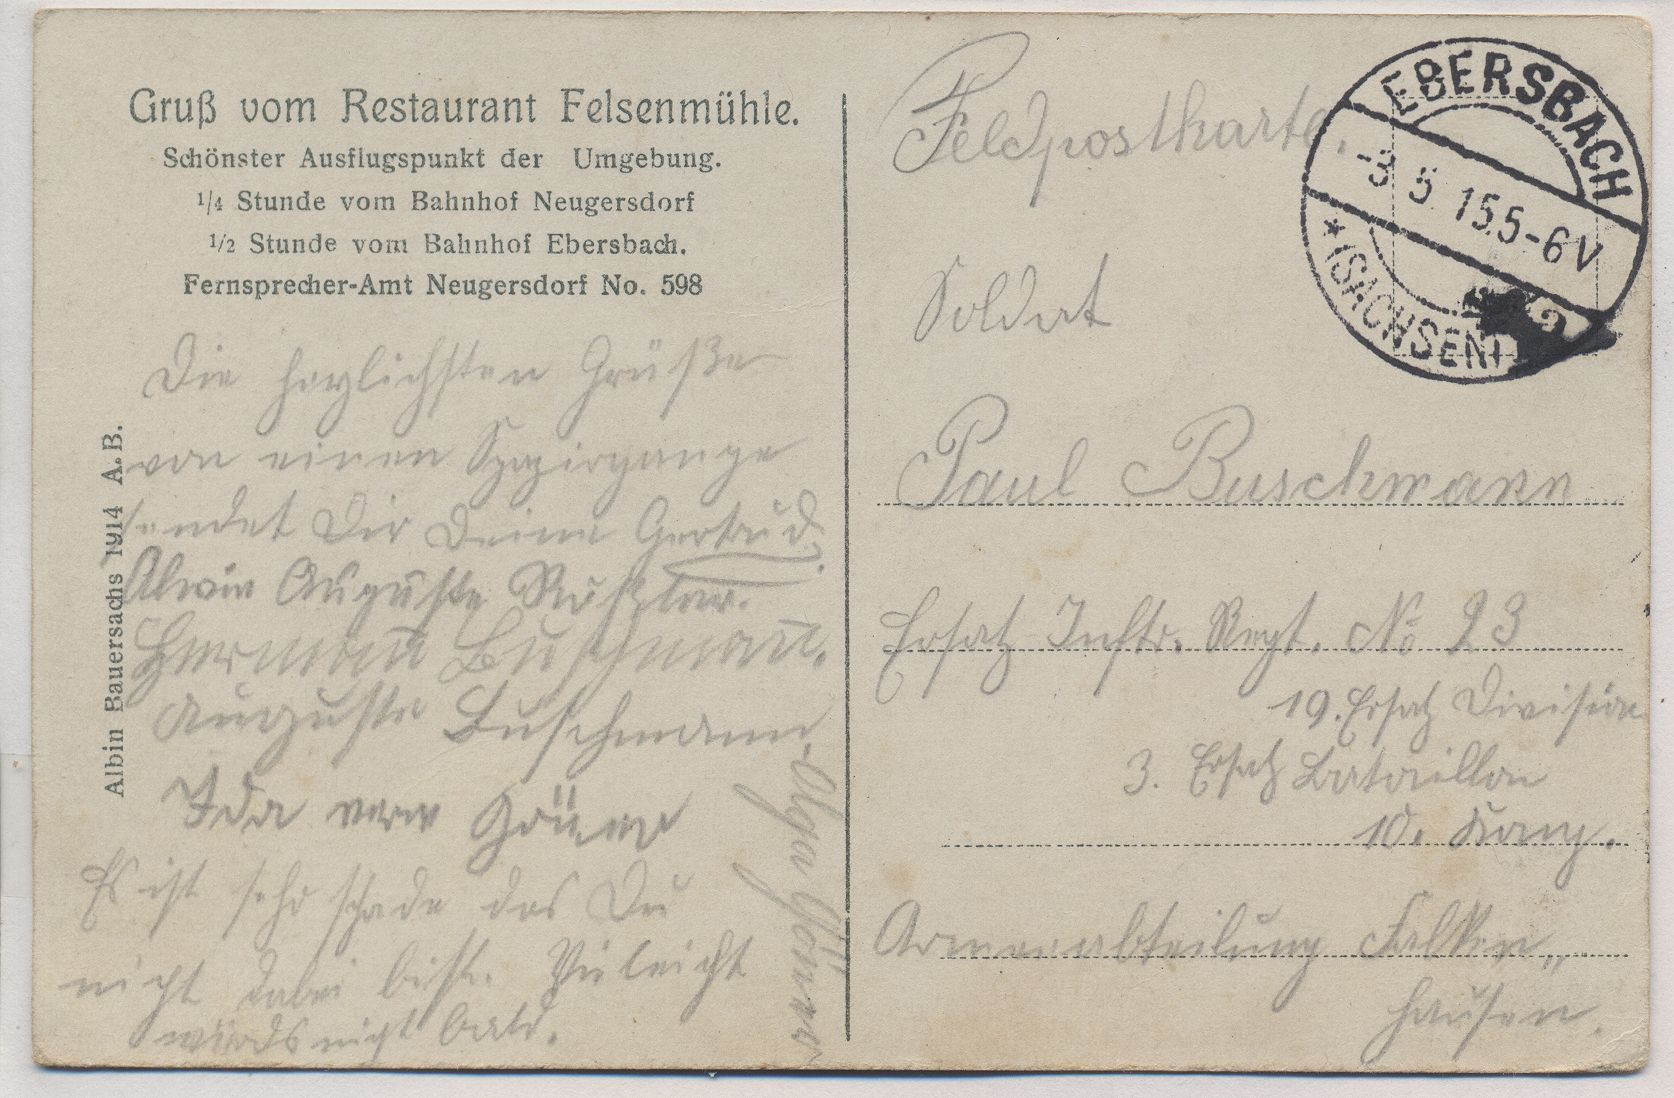 Gruß vom Restaurant Felsenmühle.
Schönster Ausflugspunkt der Umgebung.
1/4 Stunde vom Bahnhof Neugersdorf
1/2 Stunde vom Bahnhof Ebersbach.
Fernsprecher-Amt Neugersdorf No. 598
Die herzlichsten Grüße
von einen Spazirgange
sendet Dir Deine Gertrud.
Alwin Auguste
Hermann Buschmann.
Auguste Buschmann
Ida
Olga
Es ist sehr schade das Du
nicht dabei bist. Vieleicht
wirds nicht bald.
Albin Bauersachs 1914 A. B.
Feldpostkarte.
EBERSBACH
-3 5 15.5-6V
* (SACHSEN)
Soldat
Paul Buschmann
Ersatz Inftr. Regt. No 23
19. Ersatz Division
3. Ersatz Bataillon
10. Komp.
Armeeabteilung Falken„
hausen.